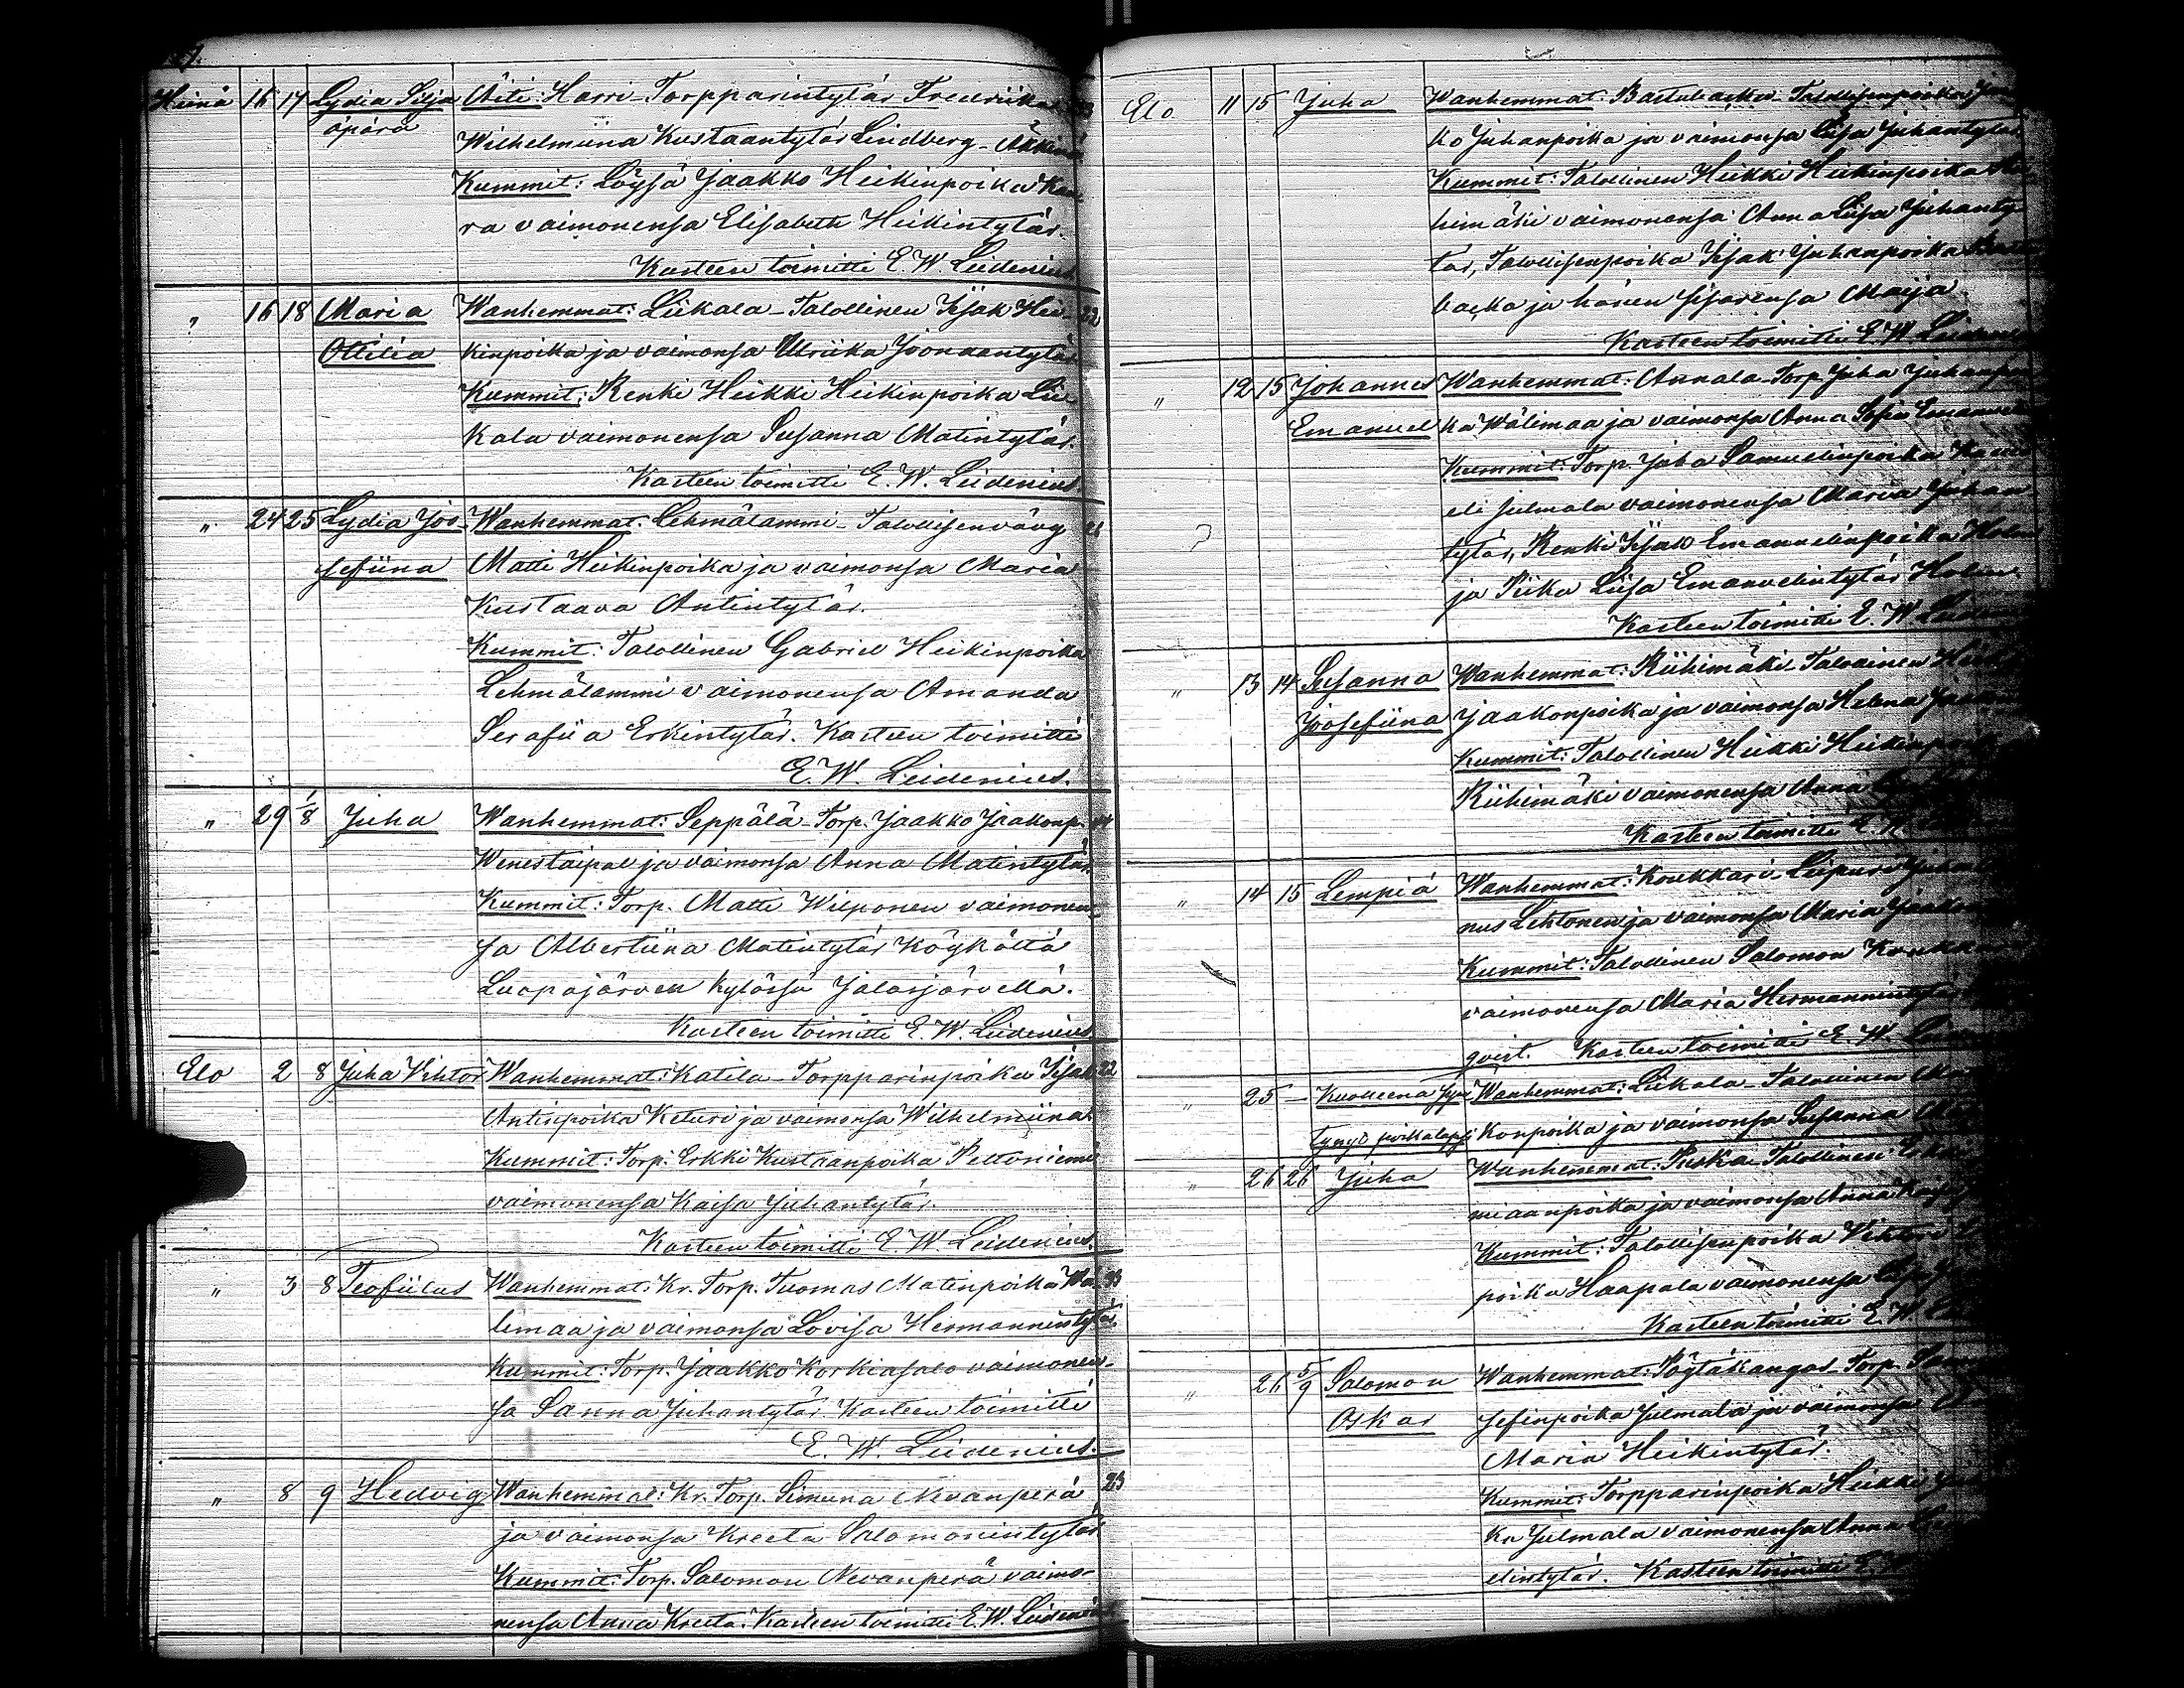 Heinä 16 17 Lydia Silja Äiti: Harri Torpparintytär Fredriika
äpärä Wilhelmiina Kustaantytär Lindberg
Kummit: Löysä Jaakko Heikinpoika
ra vaimonensa Elisabeth Heikintytär.
Kasteen toimitti E. W. Leidenius.
" 16 18 Maria Wanhemmat: Liikala Talollinen Iisak Hei- 22
Ottilia kinpoika ja vaimonsa Ulriika Joonaantytär
Kummit: Renki Heikki Heikinpoika Lii-
kala vaimonensa Susanna Matintytär.
Kasteen toimitti E. W. Leidenius.
" 24 25 Lydia Joo- Wanhemmat: Lehmälammi Talollisenvävy
sefiina Matti Heikinpoika ja vaimonsa Maria
Kustaava Antintytär.
Kummit: Talollinen Gabriel Heikinpoika
Lehmälammi vaimonensa Amanda
Serafiia Erkintytär. Kasteen toimitti
E. W. Leidenius.
" 29 1/8 Juha Wanhemmat: Seppälä Torp. Jaakko Jaakonp.
Wenestaipal ja vaimonsa Anna Matintytär
Kummit: Torp. Matti Wieponen vaimonen-
sa Albertiina Matintytär Köykältä
Luopajärven kylässä Jalasjärvellä.
Kasteen toimitti E. W. Leidenius.
Elo 2 8 Juha Vihtor Wanhemmat: Katila Torpparinpoika Iisak 22
Antinpoika Keturi ja vaimonsa Wilhelmiina
Kummit: Torp. Erkki Kustaanpoika Peltoniemi
vaimonensa Kaisa Juhantytär.
Kasteen toimitti E. W. Leidenius.
" 3 8 Teofiilus Wanhemmat: Kr. Torp. Tuomas Matinpoika Wä- 23
limaa ja vaimonsa Lovisa Hermannintytär.
Kummit: Torp. Jaakko Korkiasalo vaimonen-
sa Sanna Juhantytär. Kasteen toimitti
E. W. Leidenius.
" 8 9 Hedvig Wanhemmat: Kr. Torp. Simuna Nevanperä 23
ja vaimonsa Kreeta Salomonintytär
Kummit: Torp. Salomon Nevanperä vaimo-
nensa Anna Kreeta. Kasteen toimitti E. W. Leidenius
Elo 11 15 Juha Wanhemmat: Bastubacka Talollisenpoika
ko Juhanpoika ja vaimonsa Liisa Juhantytär.
Kummit: Talollinen Heikki Heikinpoika
himäki vaimonensa Anna Liisa Juhanty-
tär, Talollisenpoika Iisak Juhanpoika
backa ja hänen sisarensa Maija
Kasteen toimitti E. W. Leidenius
" 12 15 Johannes Wanhemmat: Annala Torp. Juha Juhanpoi-
Emanuel ka Wälimaa ja vaimonsa Anna Sofia
Kummit: Torp. Juha Samuelinpoika
eli Julmala vaimonensa Maria Juhan-
tytär, Renki Iisak Emanuelinpoika
ja Piika Liisa Emanuelintytär
Kasteen toimitti E. W.
" 13 14 Susanna Wanhemmat: Riihimäki Talollinen
Joosefiina Jaakonpoika ja vaimonsa Helena
Kummit: Talollinen Heikki Heikinpoika
Riihimäki vaimonensa Anna
Kasteen toimitti E. W.
" 14 15 Lempiä Wanhemmat: Koukkari Leipuri
nus Lehtonen ja vaimonsa Maria
Kummit: Talollinen Salomon
vaimonensa Maria Hermannintytär
qvist. Kasteen toimitti E. W.
" 25 — Kuolleena syn- Wanhemmat: Liikala Talollinen
tynyt poikalapsi konpoika ja vaimonsa Susanna
" 26 26 Juha Wanhemmat: Riska Talollinen
miaanpoika ja vaimonsa Anna
Kummit: Talollisenpoika Vihtori
poika Haapala vaimonensa
Kasteen toimitti E. W.
" 26 5/9 Salomon Wanhemmat: Pöytäkangas Torp.
Oskar sefinpoika Julmala ja vaimonsa
Maria Heikintytär.
Kummit: Torpparinpoika Heikki
ka Julmala vaimonensa Anna
elintytär. Kasteen toimitti E.